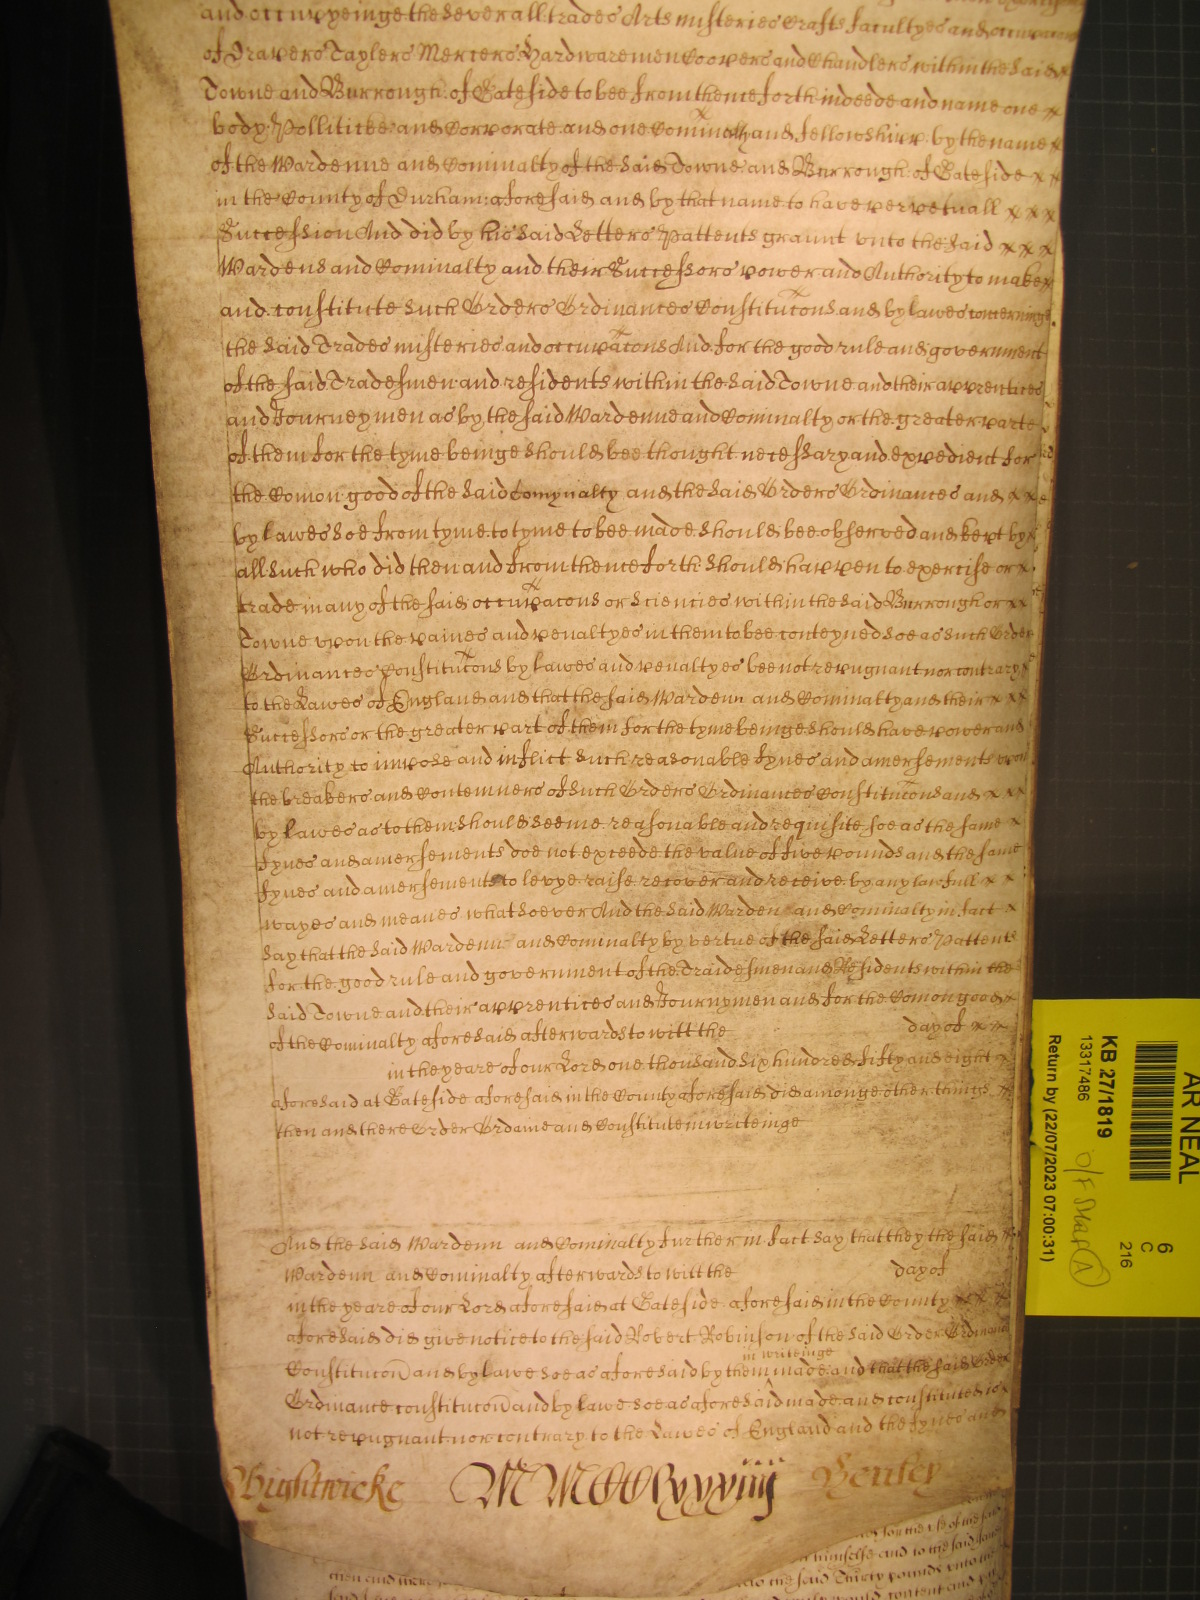 and occupyeinge the severall trades Arts misteries Crafts facultyes and occupacons
of Drapers Taylers Mercers Hardwaremen Coopers and Chandlers within the said
Towne and Burrough of Gateside to bee from thenceforth in deede and name one
body Polliticke and Corporate and one Cominalty and fellowshipp by the name
of the Wardenne and Cominalty of the said Towne and Burrough of Gateside
in the County of Durham aforesaid and by that name to have perpetuall
Succession And did by his said Letters Pattents graunt unto the said
Wardens and Cominalty and their Successors power and Authority to make
and constitute such Orders Ordinances Constitucons and bylawes concerninge
the said Trades misteries and occupacons And for the good rule and government
of the said Tradesmen and residents within the said Towne and their apprentices
and Journeymen as by the said Wardenne and Cominalty or the greater parte
of them for the tyme beinge should bee thought necessary and expedient for
the Comon good of the said Comynalty and the said Orders Ordinances and
bylawes soe from tyme to tyme to bee made should bee observed and kept by
all such who did then and from thenceforth should happen to exercise or
trade in any of the said occupacons or sciencies within the said Burrough or
Towne upon the paines and penaltyes in them to bee conteyned soe as such Orders
Ordinances Constitucons bylawes and penaltyes bee not repugnant nor contrary
to the Lawes of England and that the said Wardenn and Cominalty and their
Successors or the greater part of them for the tyme beinge should have power and
Authority to impose and inflict such reasonable fynes and amersements upon
the breakers and Contemners of such Orders Ordinances Constitucons and
bylawes as to them should seeme reasonable and requisite soe as the same
fynes and amersements doe not exceede the value of five pounds and the same
fynes and amersements to levye raise recover and receive by any lawfull
wayes and meanes whatsoever And the said Warden and Cominalty in fact
say that the said Wardenn and Cominalty by vertue of the said Letters Pattents
for the good rule and government of the Traidesmen and Residents within the
said Towne and their apprentices and Journymen and for the Comon good
of the Cominalty aforesaid afterwards to witt the day of
in the yeare of our Lord one thousand six hundred fifty and eight
aforesaid at Gateside aforesaid in the County aforesaid did amonge other things
then and there Order Ordaine and Constitute in writeinge
And the said Wardenn and Cominalty further in fact say that they the said
Wardenn and Cominalty afterwards to witt the day of
in the yeare of our Lord aforesaid at Gateside aforesaid in the County
aforesaid did give notice to the said Robert Robinson of the said Order Ordinance
in writeinge
Constitucon and bylawe soe as aforesaid by them made and that the said Order
Ordinance constitucon and bylawe soe as aforesaid made and constituted is
not repugnant nor contrary to the Lawes of England and the fynes and
Wightwicke MMCClxxxiiij Venter
himselfe and to the said
the said Thirty pounds unto the
content and
AR NEAL
6
C
216
KB 27/1819
13317486
Return by (22/07/2023 07:00:31)
O/F
A